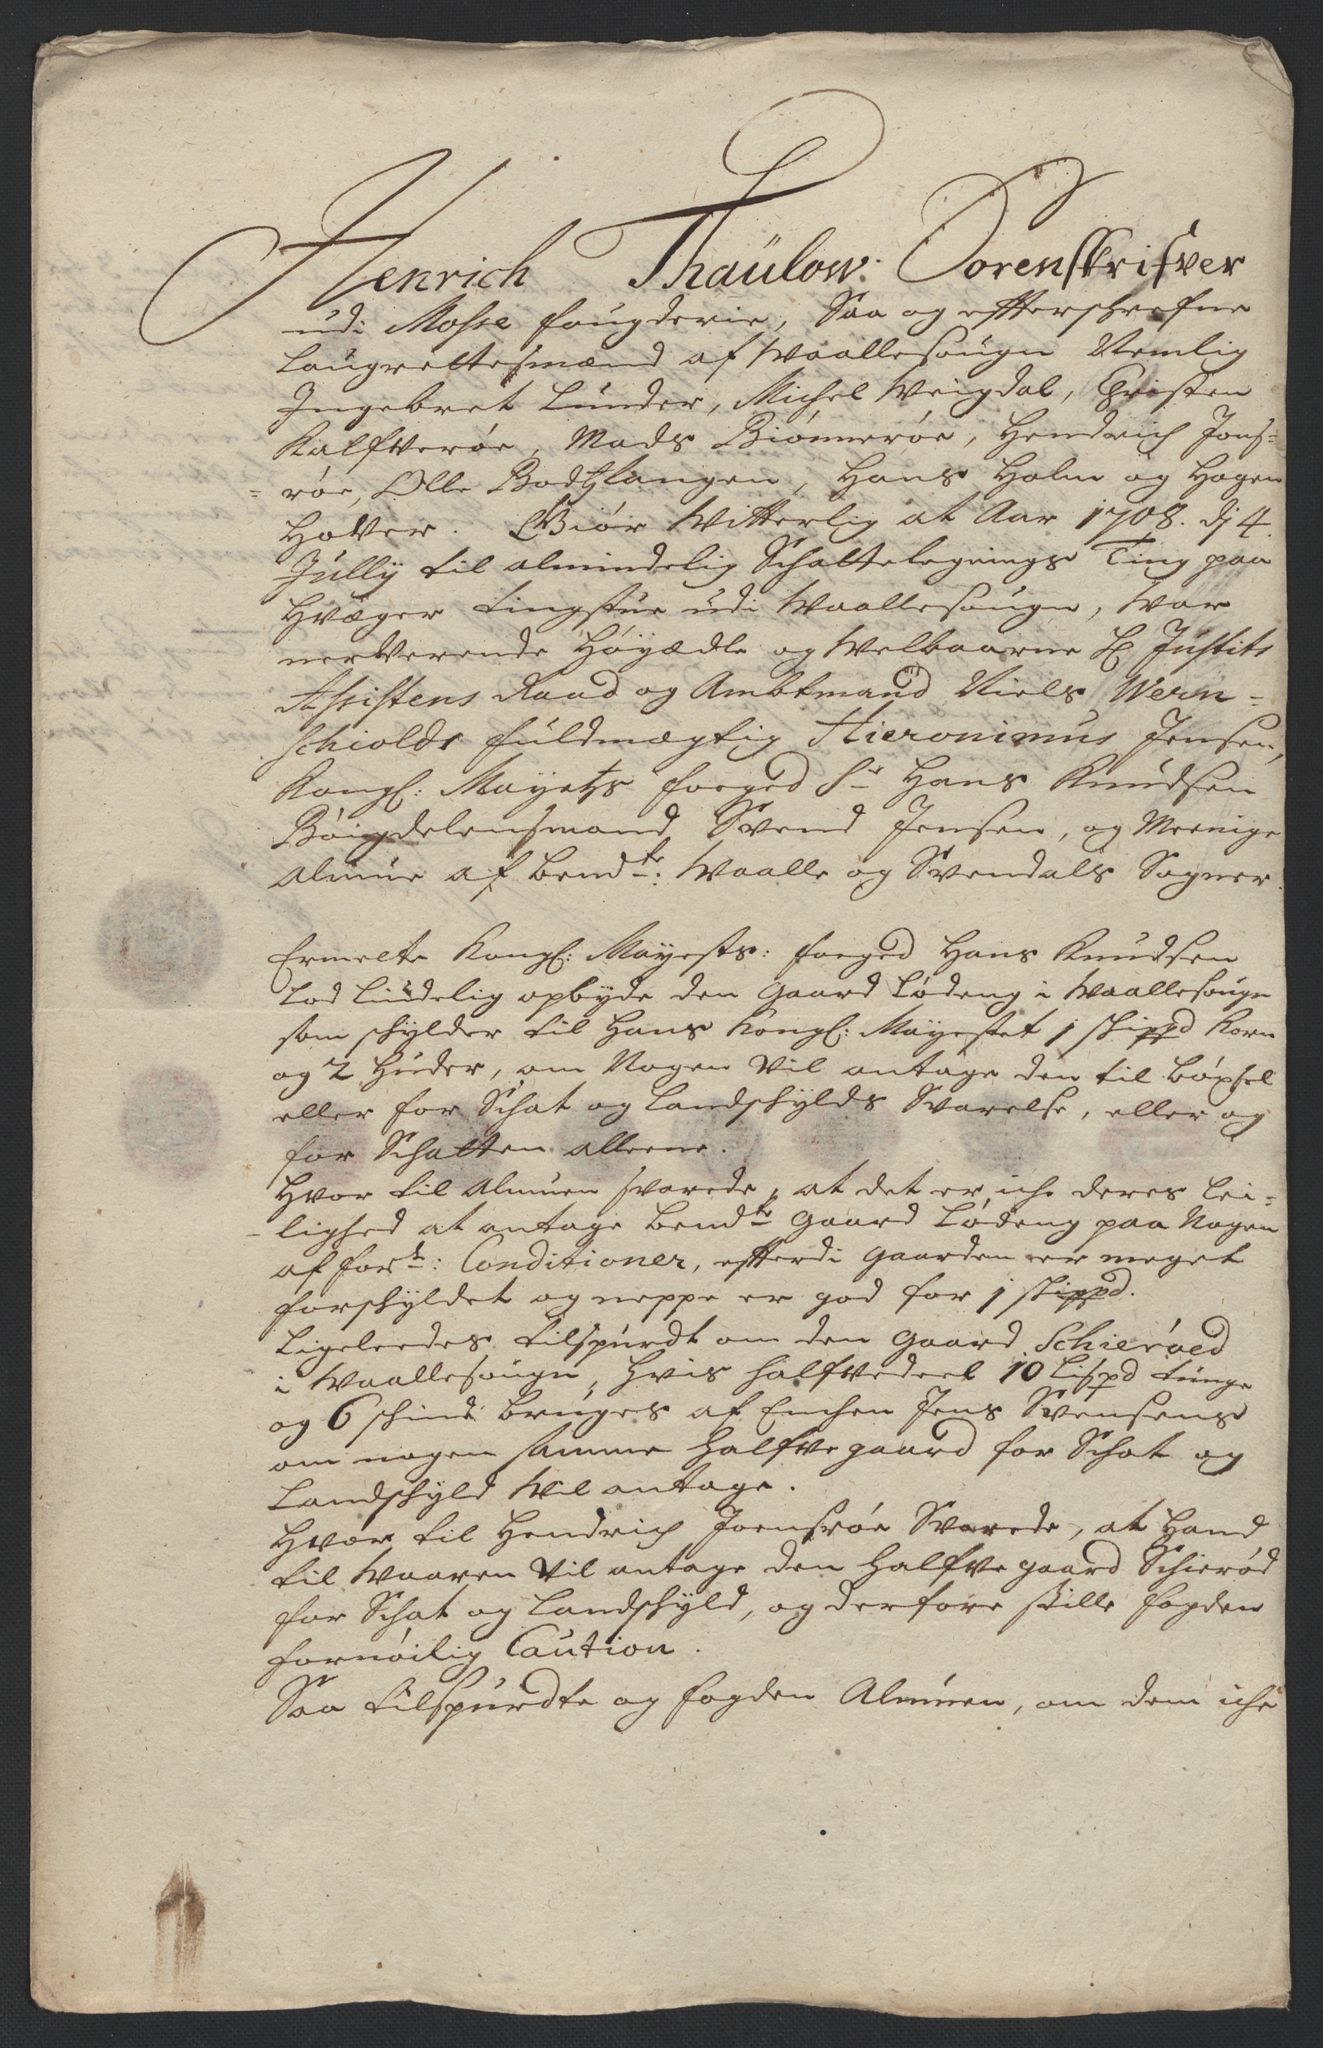 Henrich Thaülow: Sorenskrifver
udi Mosse fougderie, Saa og effterschrefne
Laugrettesmænd af Waallesougn Nemlig
Ingebret Lunder, Michel Weigdal, Christen
Kalfverøe, Mads Biønnerøe, Hendrich Jons-
-røe, Olle Bodtzlangen, Hans Holm og Hagen
Hofver. Giør Witterlig at Aar 1708. dj 4
Jülly til almindelig Schattelegnings Ting paa
Hvæger tingstue udi Waallesougn, War
nerverende Høyædle og Welbaarne H Justits
Assistens Raad og Ambtmand Niels Wern-
schiolds fuldmægtig Hieronimus Jensen,
Kongl: Mayetzs foeged Sr Hans Knudsen
Bøigdelensmand Svend Jensen, og Meenige
Almue af bemdte: Waalle og Svendals Sogner.
Ermelte Kongl: Mayests: foeged Hans Knudsen
Lod Liudelig opbyde den gaard Lødeng i Waallesougn
som schylder til Hans Kongl: Mayestet 1 skippd Korn
og 2 Huder, om Nogen Vil antage den til Bøxsel
eller for Schat og Landschylds Svarelse, eller og
for Schatten alleene.
Hvor til Almuen svarede, at det er iche deres lei-
-lighed at antage bemdte gaard Lødeng paa Nogen
af forde: Conditioner, efterdi gaarden er meget
forschyldet og neppe er god for 1 skippd.
Ligeleedes tilspurdt om den gaard Schierøed
i Waallesougn, hvis halfvedeel 10 Lispd tunge
og 6 schind bruges af Enchen Jens Svensens
om nogen samme halfve gaard for Schat og
Landschyld Wil antage.
Hvor til Hendrich Joensrøe Svarede, at Hand
til Waaren Vil antage den halfve gaard Schierød
for Schat og Landschyld, og derfore stille fogden
fornøilig Caution.
Saa tilspurdte og fogden Almuen, om dem iche